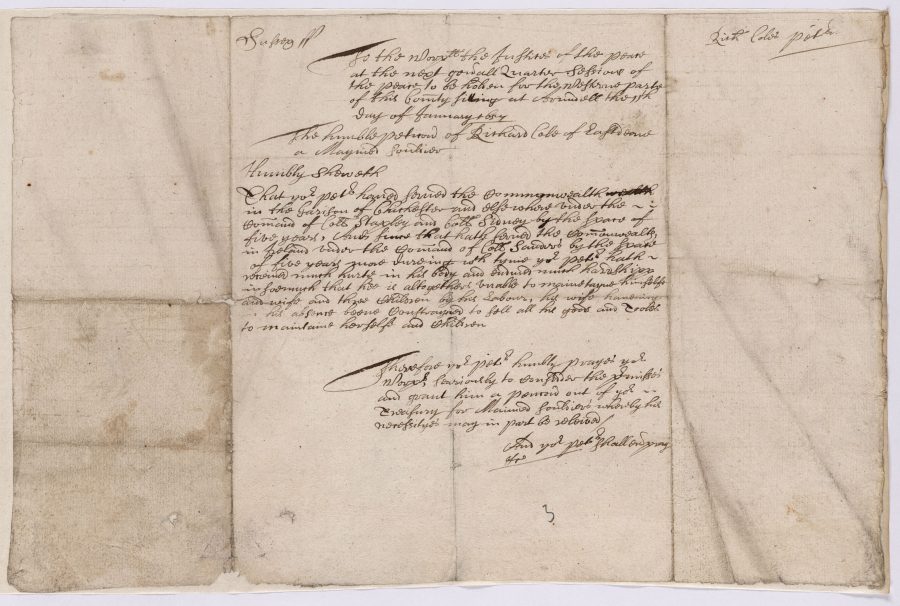 Sussex ss
Rich: Coles petr.
To the Worpll the Justices of the peace
at the next genrall Quarter Sessions of
the peace to be holen for the Westerne parte
of this County sitting at Arundell the
day of January 1657
The humble peticon of Richard Cole of Eastdeane
a Maymed Souldier
Humbly Sheweth
That yor petr haveing served the Commonwealth
in the Garison of Chichester and elsewhere under the
Comand of Coll Stapley and Coll Sidney by the space of
five yeares, And since that hath served the Commonwealth
in Ireland under the Comand of Coll Sanders by the space
of five yeares more dureing wch tyme yor petr hath
received much hurte in his body and endured much hardshipp
insoemuch that hee is altogether unable to mainetayne himselfe
and wife and three Children by his Labour, his wife haveing
in his absence beene Constrayned to sell all his goods and Tooles
to maintaine herselfe and Children
Therefore yor petr humbly prayes yor
Worps seariously to Consider the premisses
and grant him a pencon out of yor
Treasury for Maimed Souldiers whereby his
necessityes may in part be releived
And yor petr shall ever pray
&c
3